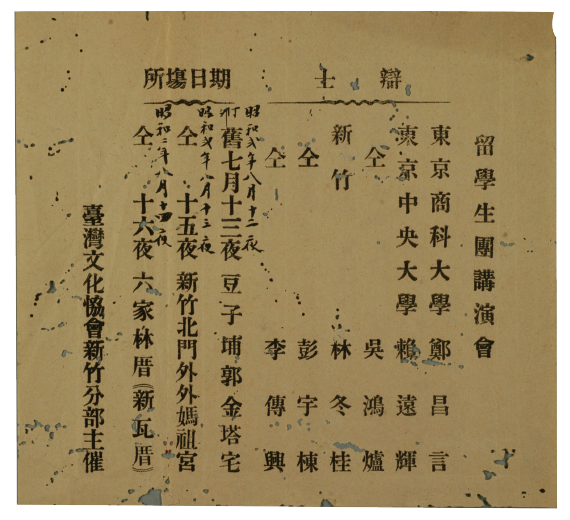 留學生團講演會
辯士
東京商科大學 鄭昌言
東京中央大學 賴遠輝
仝 吳鴻爐
新竹 林冬桂
仝 彭宇棟
仝 李傳興
期日塲所
昭和弍年八月十二夜
舊七月十三夜 豆子埔郭金塔宅
昭和弍年八月十三夜
仝 十五夜 新竹北門外外媽祖宮
昭和二年八月十四夜
仝 十六夜 六家林厝(新瓦厝)
臺灣文化恊會新竹分部主催